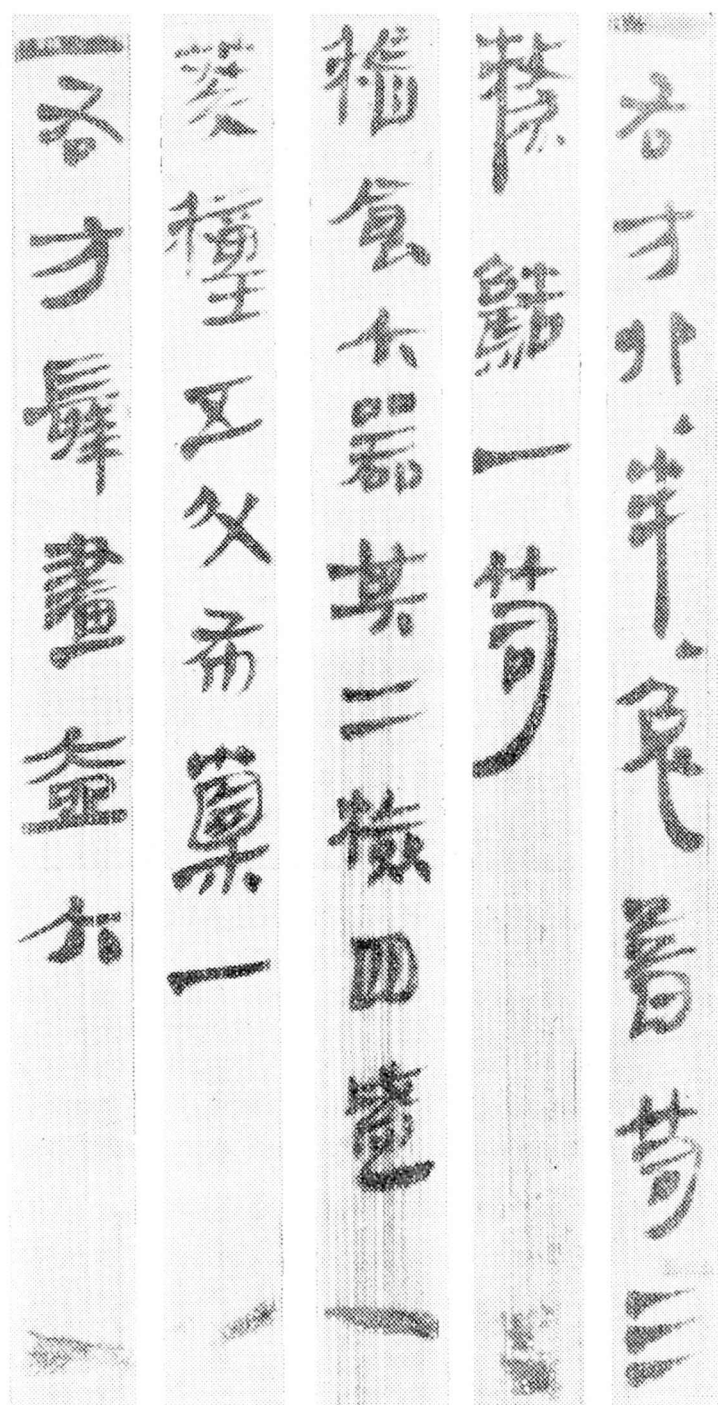 右方卵、羊、兔昔笥三
一笥
稻食六器其二檢四盛
葵穜五斗布囊一
右方髹畫壺六